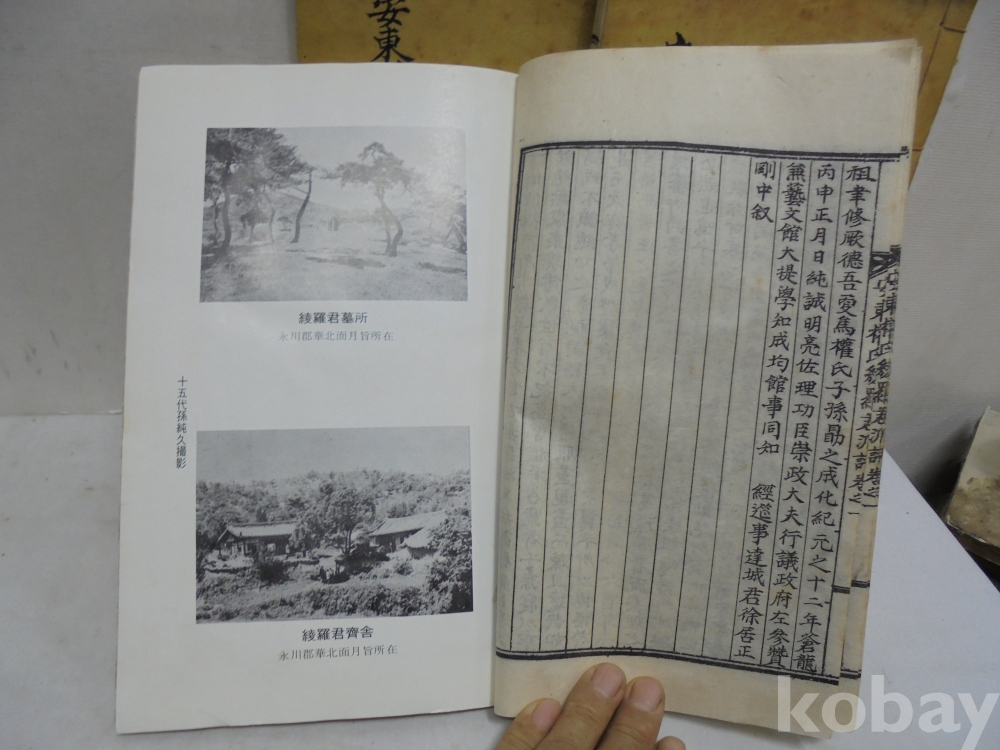 安東
綾羅君墓所
永川郡華北面月旨所在
十五代孫純久撮影
綾羅君齊舍
永川郡華北面月旨所在
安東權氏綾羅君派譜卷之一
安東權氏綾羅君派譜卷之一
祖聿修厥德吾爲權氏子孫勗之成化紀元之十二年蒼龍
丙申正月日純誠明亮佐理功臣崇政大夫行議政府左參贊
兼藝文館大提學知成均館事同知 經筵事達城君徐居正
剛中叙
kobay